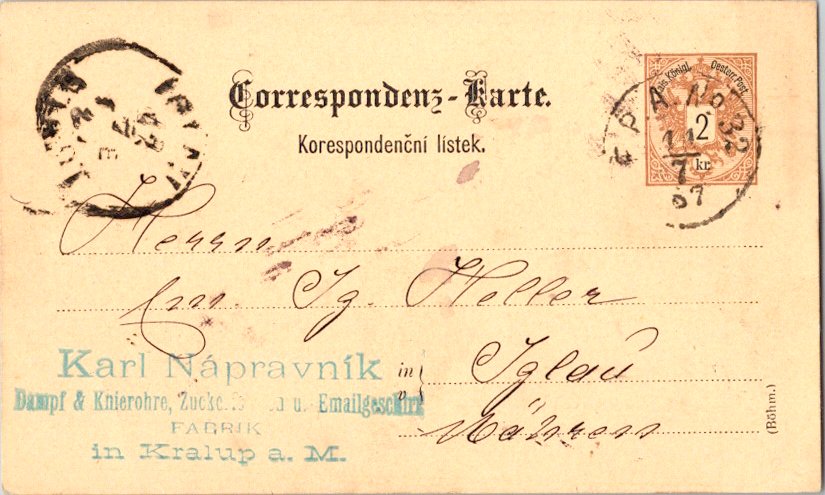 Correspondenz-Karte.
Korespondenční lístek.
Kais. Königl. Oesterr. Post
2
kr.
F.P.A. No 32
11
7
87
IGLAU
Herrn
Em. Ig. Heller
in
v
Iglau
Mähren
Karl Nápravník
Dampf & Knierohre, u. Emailgeschirr
FABRIK
in Kralup a. M.
(Böhm.)